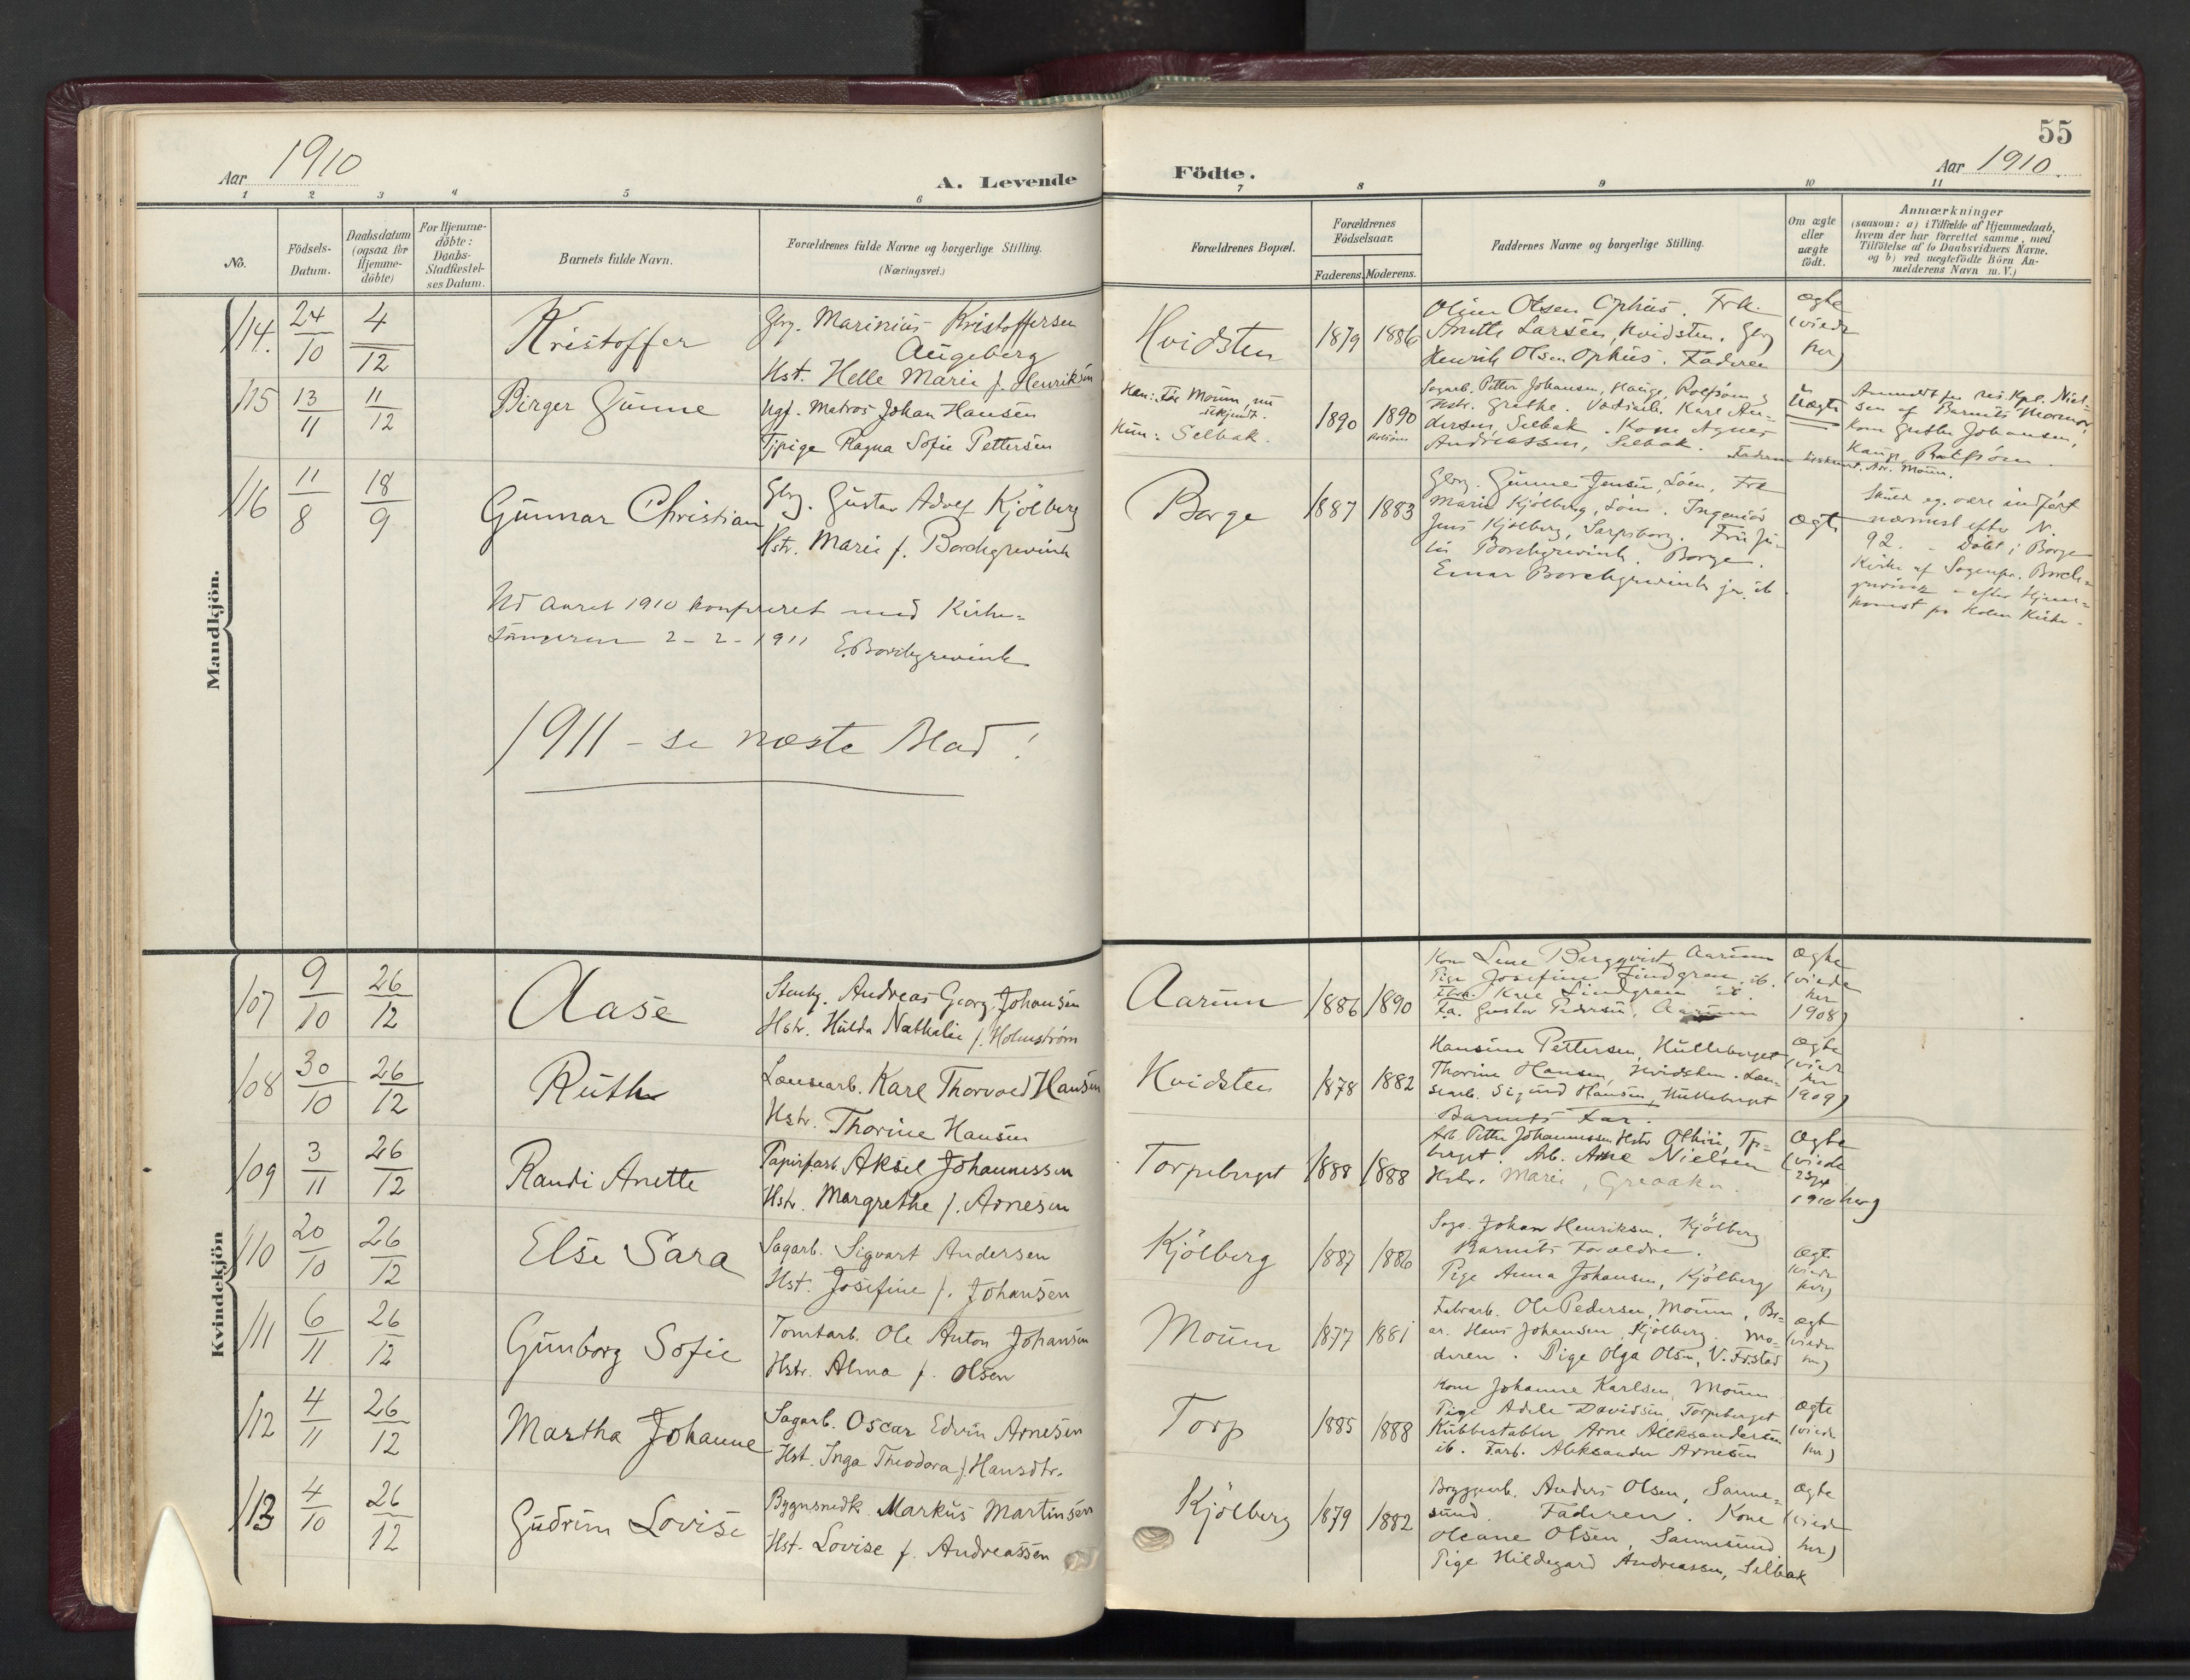 55
Aar 1910
A. Levende
Födte.
Aar 1910.
1 2 3 4 5 6 7 8 9 10 11
No.
Födsels-
Datum.
Daabsdatum
(ogsaa for
Hjemme-
döbte)
For Hjemme-
döbte:
Daabs-
Stadfæstel-
ses Datum.
Barnets fulde Navn.
Forældrenes fulde Navne og borgerlige Stilling.
(Næringsvei.)
Forældrenes Bopæl.
Forældrenes
Födselsaar.
Faderens.
Moderens.
Faddernes Navne og borgerlige Stilling.
Om ægte
eller
uægte
födt.
Anmærkninger
(saasom: a) i Tilfælde af Hjemmedaab,
hvem der har forrettet samme, med
Tilföielse af to Daabsvidners Navne.
og b) ved uægtefödte Börn An-
melderens Navn m. V.)
Mandkjön.
114.
24/10
4/12
Kristoffer
Gbrg. Marinius Kristoffersen
Augeberg
Hst. Helle Marie f. Henriksen
Hvidsten
1879
1886
Olsen Ophus. Frk.
Anette Larsen, Hvidsten. Gbrg
Henrik Olsen Ophus. Faderen
ægte
(viede
her)
115
13/11
11/12
Birger Gunne
Ugf. Matros Johan Hansen
Tjpige Ragna Sofie Pettersen
Han: Moum, nu
ukjendt.
Hun: Selbak.
1890
1890
Sagarb. Petter Johansen, Hauge, Rolfsøen,
Hstr. Grethe. Karl An-
dersen, Selbak. Kone Agnes
Andreassen, Selbak.
Uægte
Anmeldt for res. Kpl. Niel-
sen af Barnets Mormor,
Kone Johansen,
Hauge, Rolfsøen.
116
11/8
18/9
Gunnar Christian
Gbrg. Gustav Adolf Kjölberg
Hstr. Marie f. Borchgrevink
Borge
1887
1883
Gbrg. Gunne Jensen, Frk
Marie Kjölberg, Ingeniør
Jens Kjølberg, Sarpsborg. Fru Ju-
lie Borchgrevink. Borge.
Einar Borchgrevink jr. ib
ægte
Skulde eg. være indført
nærmest efter N.
92. - Døbt i Borge
Kirke af Sogenpr. Borch-
grevink - efter Hjem-
komst fra Holen Kirke.
Ud aaret 1910 konfereret med Kirke-
sangeren 2-2-1911 E. Borchgrevink
1911 - se næste Blad!
Kvindekjön
107
9/10
26/12
Aase
Stenhg. Andreas Georg Johansen
Hstr. Hulda Nathalie f. Holmstrøm
Aarum
1886
1890
Kone Lene Bergqvist Aarum
Pige Josefine Lindgren, ib.
Lindgren ib.
Fa. Gustav Pedersen, Aarum
Ægte
(viede
her
1908)
108
30/10
26/12
Ruth
Lænsearb. Karl Thorvald Hansen
Hstr. Thorine Hansen
Hvidsten
1878
1882
Hansine Pettersen, Hulleberget
Thorine Hansen, Hvidsten. Læn-
searb. Sigurd Hansen, Hulleberget
Barnets Far.
Ægte
(viede
her
1909)
109
3/11
26/12
Randi Anette
Papirfarb. Aksel Johannessen
Hstr. Margrethe f. Arnesen
Torpeberget
1888
1888
Arb. Petter Johannessen, Hstr. Tp-
berget. Arb. Arne Nielsen
Hstr. Marie, Greaaker.
Ægte
(viede
1910 her)
110
20/10
26/12
Else Sara
Sagarb. Sigvart Andersen
Hst. Josefine f. Johansen
Kjölberg
1887
1886
Johan Henriksen, Kjölberg
Barnets Forældre.
Pige Anna Johansen, Kjölberg
ægte
(viede
her)
111
6/11
26/12
Gunborg Sofie
Tomtarb. Ole Anton Johansen
Hstr. Alma f. Olsen
Moum
1877
1881
Fabrarb. Ole Pedersen, Moum,
Hans Johansen, Kjölberg. Mo-
deren. Pige Olga Olsen, V. Frstad
ægte
(viede
her)
112
4/11
26/12
Martha Johanne
Sagarb. Oscar Edvin Arnesen
Hst. Inga Theodora f. Hansdtr.
Torp
1885
1888
Kone Johanne Karlsen, Moum
Pige Adele Davidsen, Torpeberget
Kubbestabler Arne Aleksandersen
ib. Farb. Aleksander Arnesen
ægte
(viede
her)
113
4/10
26/12
Gudrun Lovise
Bygnsnedk. Markus Martinsen
Hst. Lovise f. Andreassen
Kjölberg
1879
1882
Bryggearb. Anders Olsen, Sanne-
sund. Faderen. Kone
Oleane Olsen, Sannesund
Pige Hildegard Andreassen, Selbak
ægte
(viede
her)